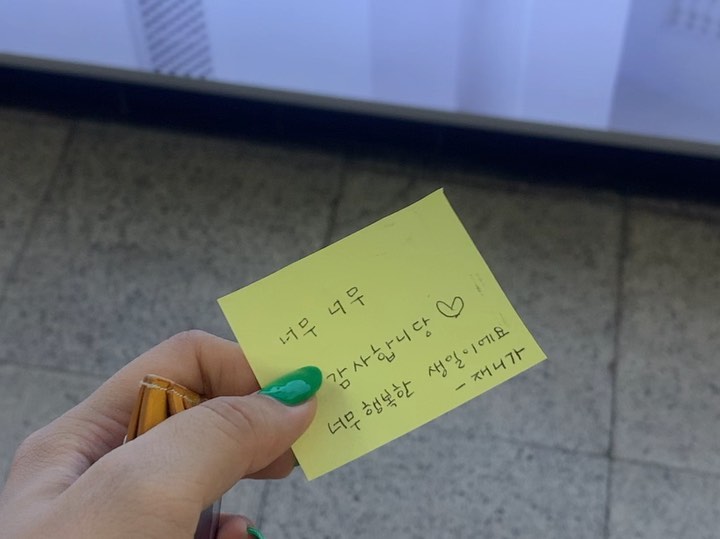 너무 너무
감사합니당 ♡
너무 행복한 생일이에요
- 재니가